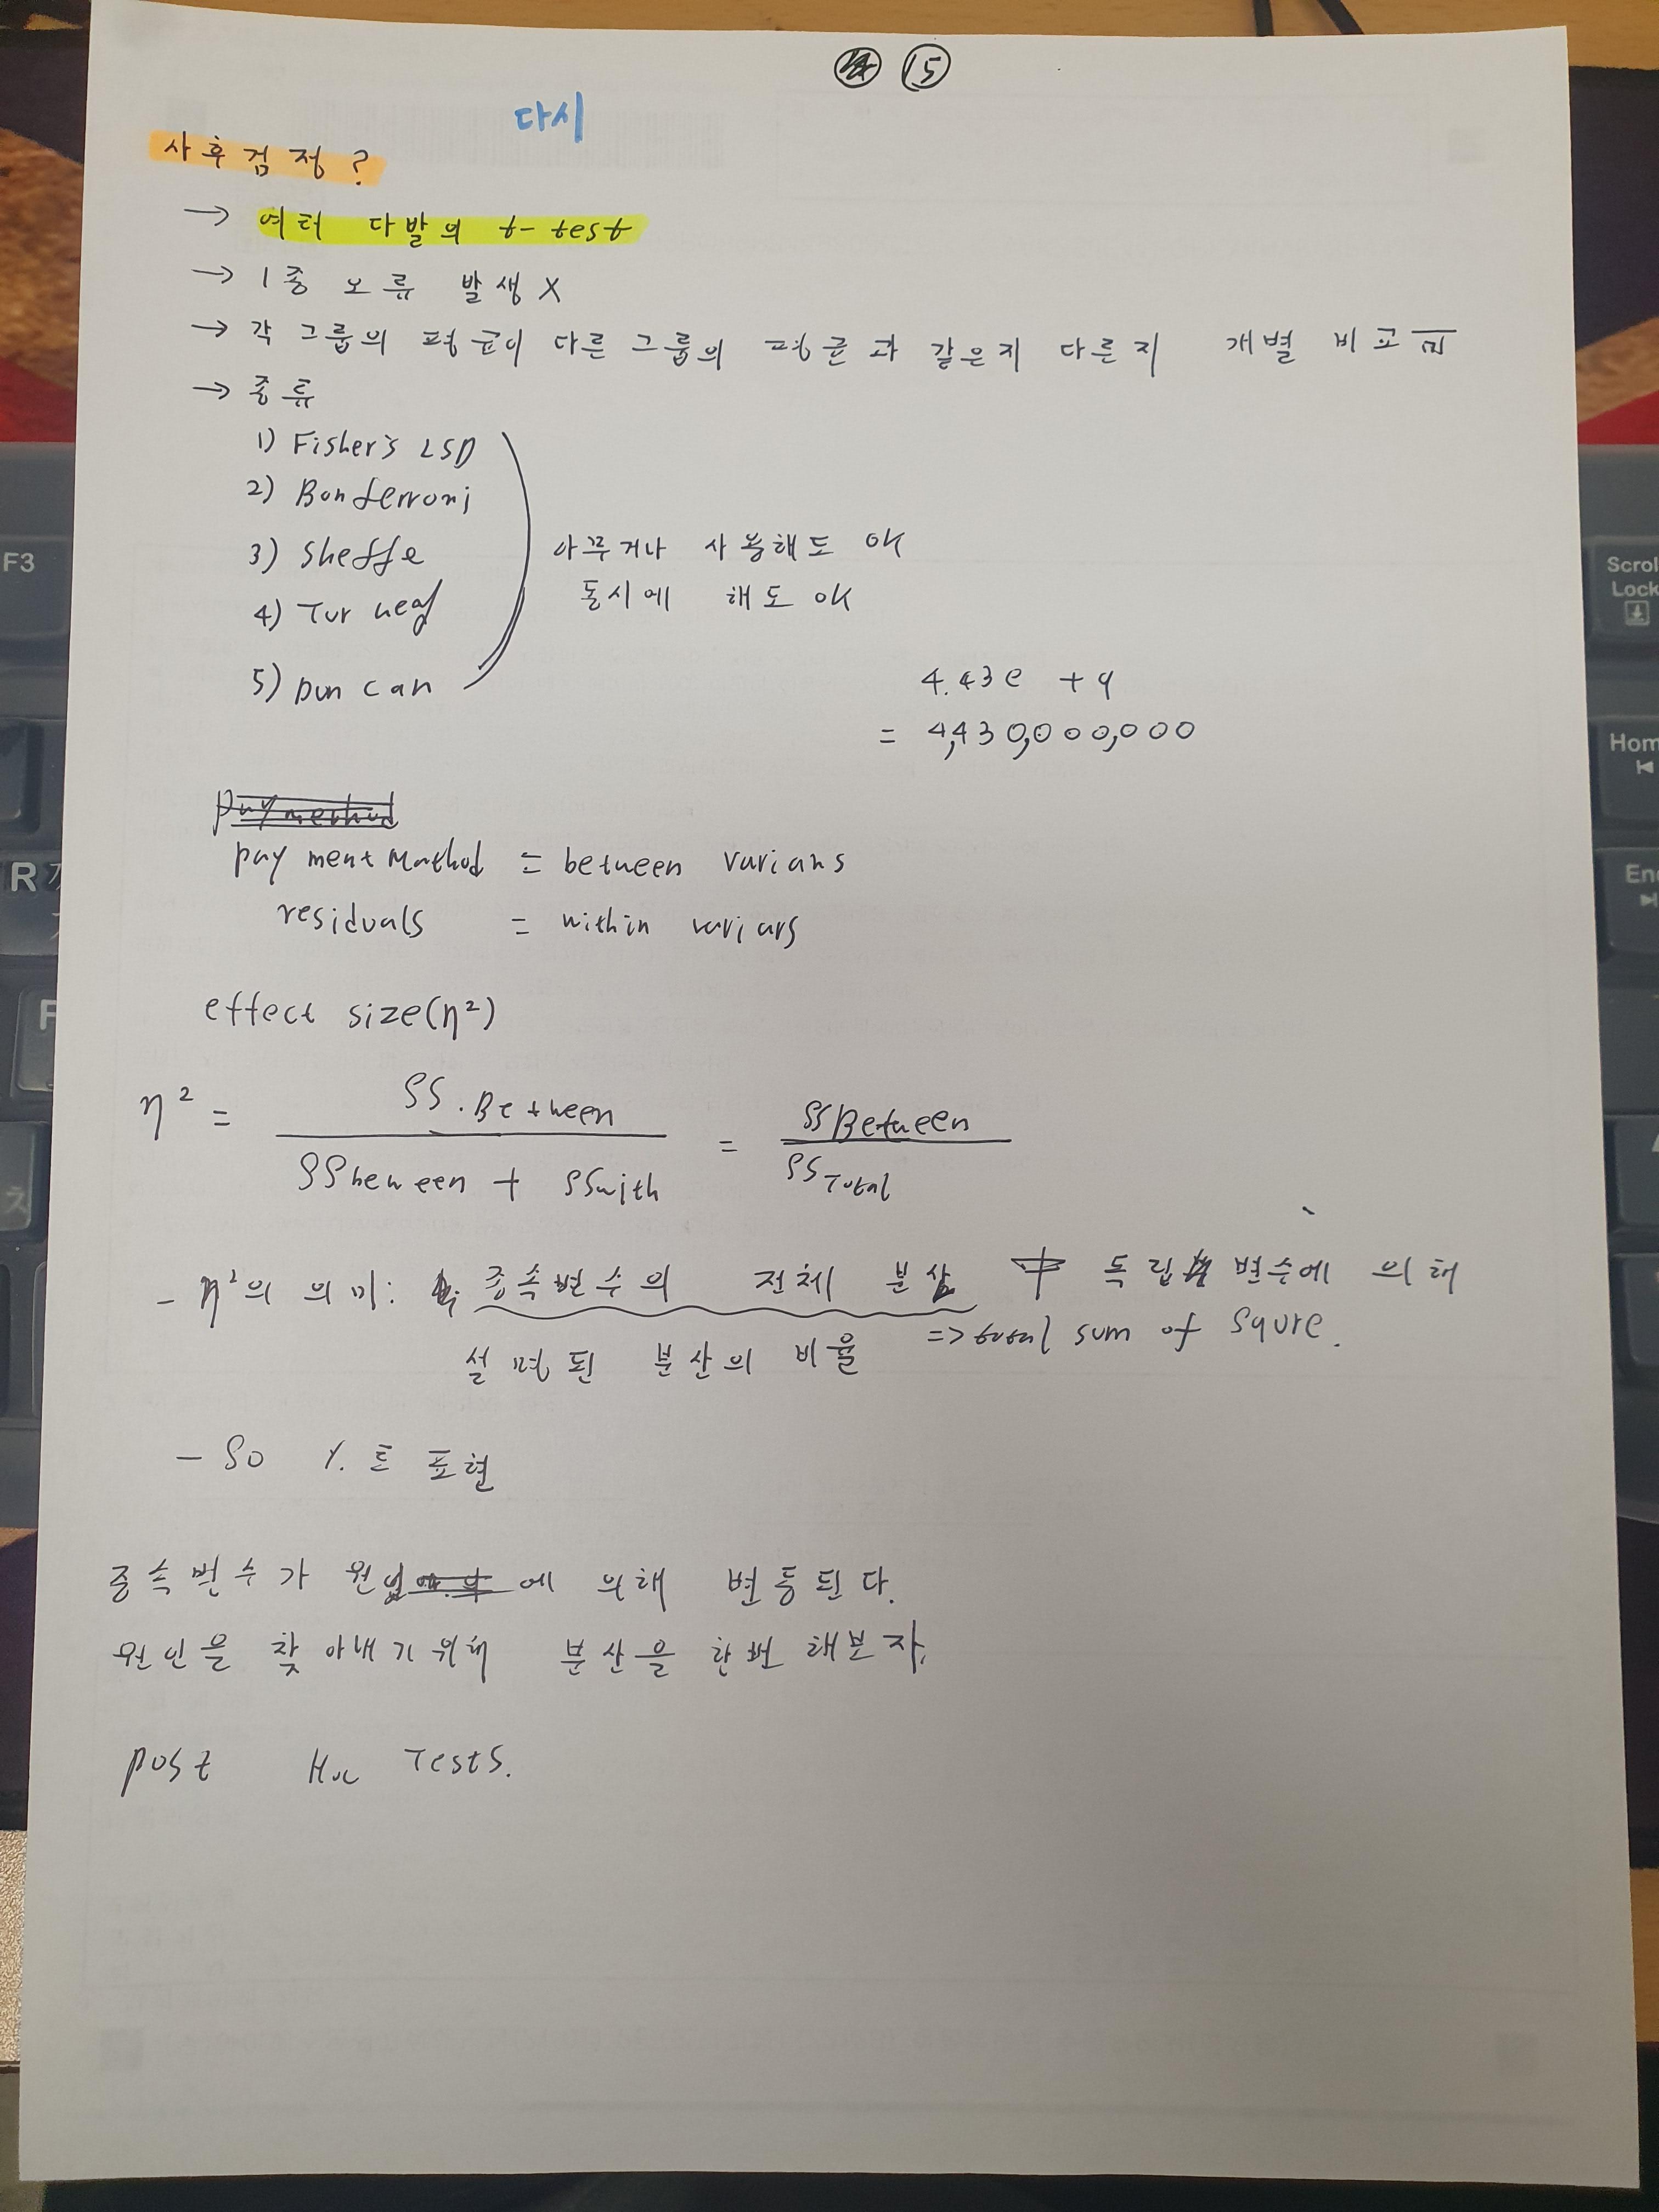 15
다시
사후검정?
→ 여러 다발의 t-test
→ 1종 오류 발생 X
→ 각 그룹의 평균이 다른 그룹의 평균과 같은지 다른지 개별 비교
→ 종류
1) Fisher's LSD
2) Bonferroni
3) Sheffe
4)
5) Duncan
아무거나 사용해도 OK
동시에 해도 OK
4.43e +9
= 4,430,000,000
paymethod
payment Mathod = between varians
residuals = within varians
effect size(η²)
η² = SS.Between / SSbeween + SSwith = SSBetween / SSTotal
- η²의 의미: 종속변수의 전체 분산 中 독립 변수에 의해
설명된 분산의 비율 => total sum of squre.
- So %로 표현
종속변수가 원인에 의해 변동된다.
원인을 찾아내기위해 분산을 한번 해보자.
post Hoc Tests.
F3
Scrol
Lock
Hom
End
R
F
ㅊ